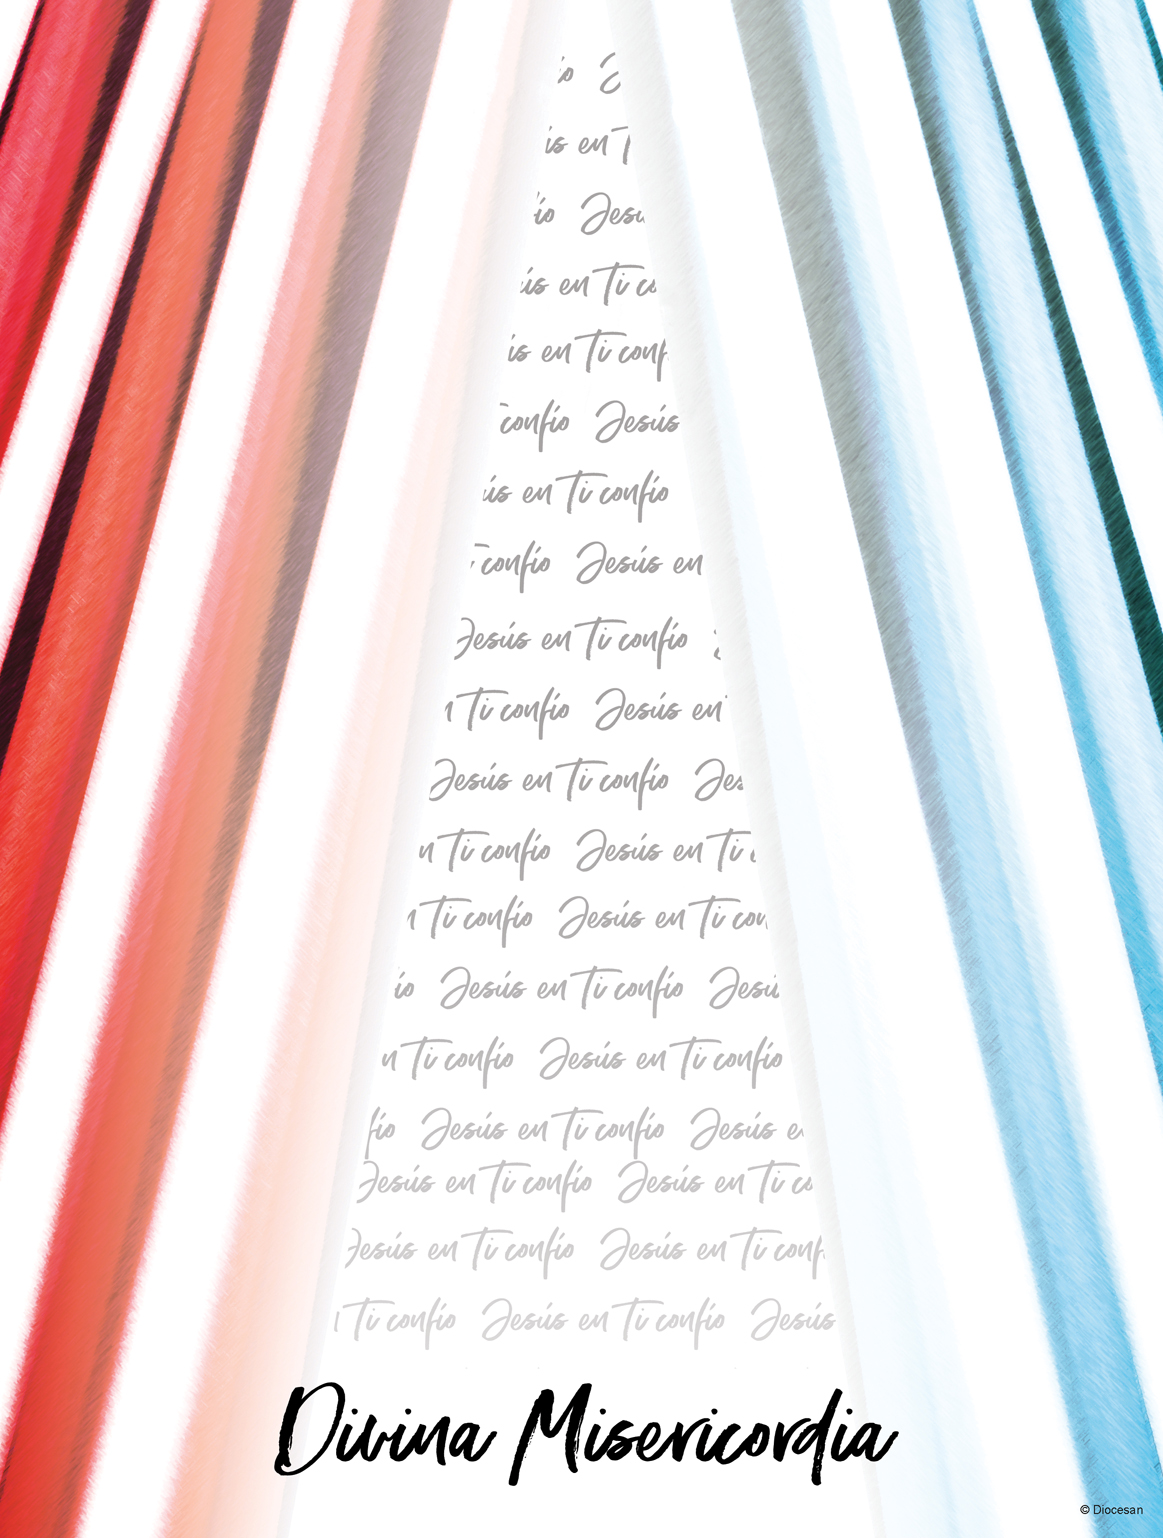 ío
ís en T
ío Jesu
ús en Ti co
is en Ti conf
confío Jesús
ús en Ti confío
confío Jesús en
Jesús en Ti confío
n Ti confío Jesús en
Jesús en Ti confío Jes
n Ti confío Jesús en Ti
n Ti confío Jesús en Ti con
ío Jesús en Ti confío Jesú
n Ti confío Jesús en Ti confío
fío Jesús en Ti confío Jesús e
Jesús en Ti confío Jesús en Ti co
Jesús en Ti confío Jesús en Ti conf
Ti confío Jesús en Ti confío Jesús
Divina Misericordia
© Diocesan